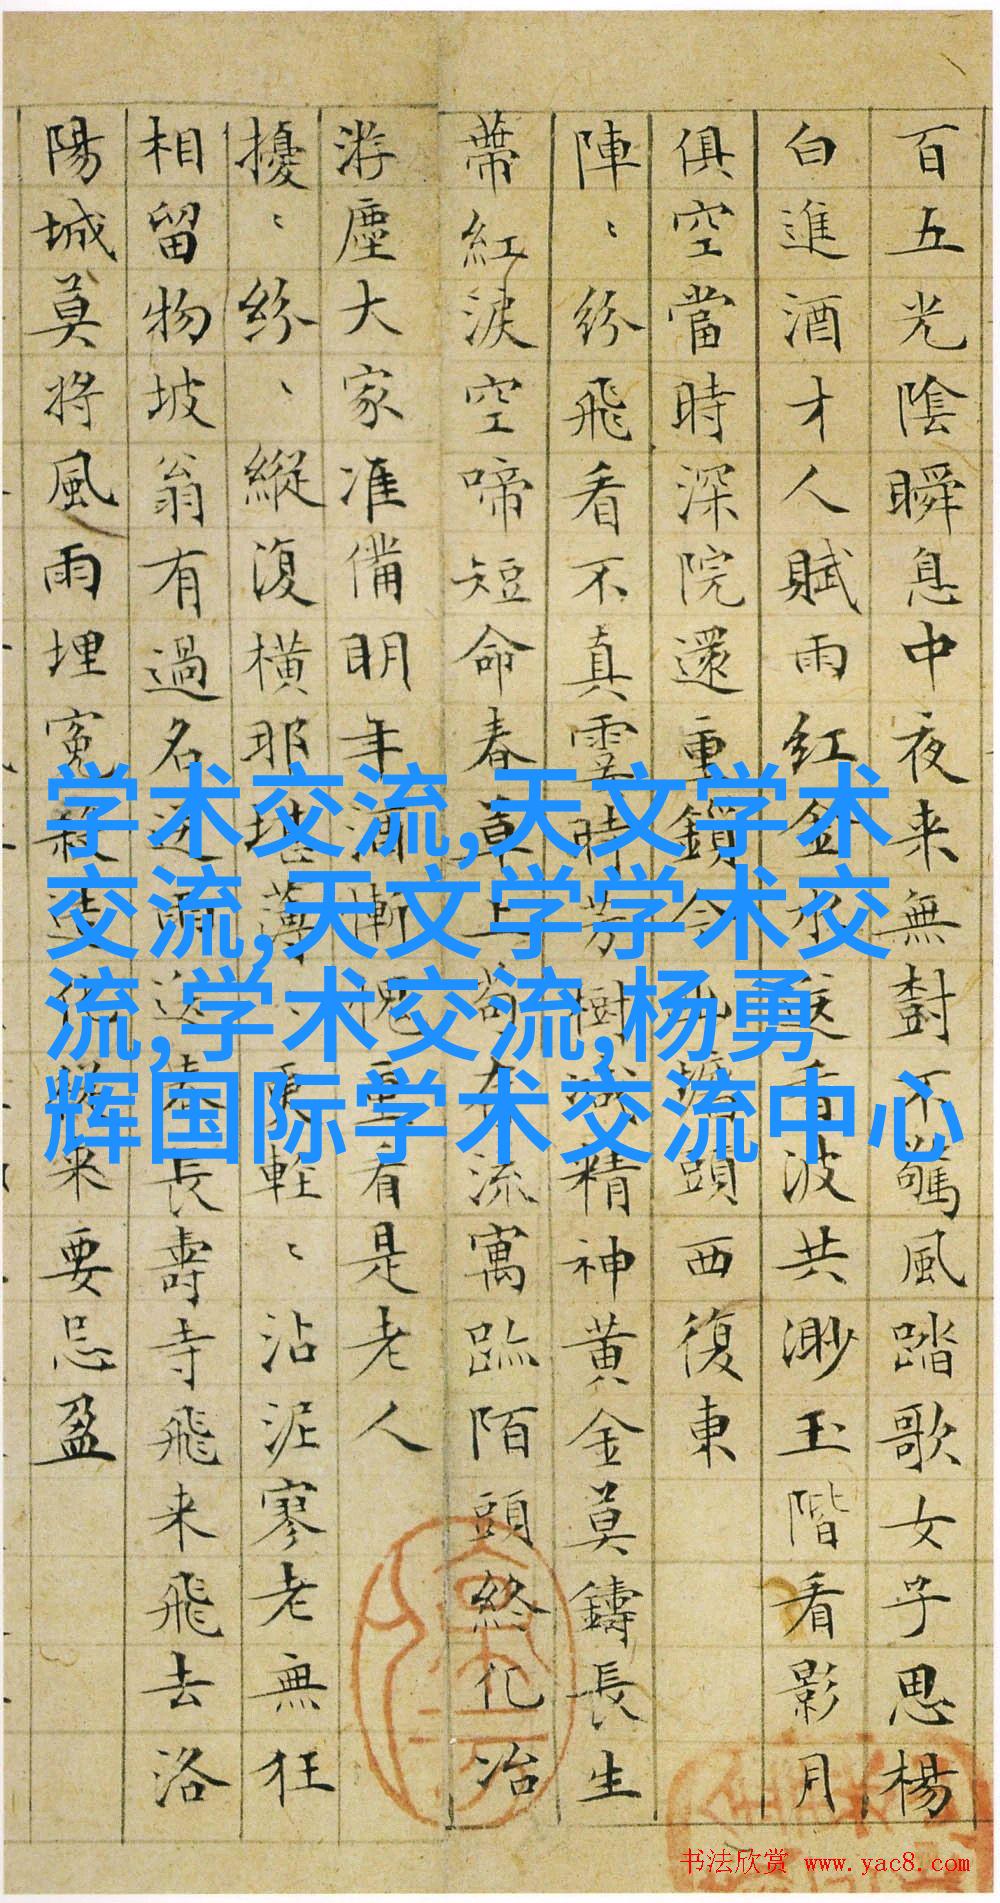 百五光陰瞬息中夜来無對不驚風踏歌女子思楊
白進酒才人賦雨紅金水

香波共渺玉階看影月
俱空當時深院還重鎖今

頭西復東
陣、紛飛看不真霎時芳樹減精神黃金莫鑄長生
蒂紅淚空啼短命春草上

流寓跡陌頭終化冶
游塵大家準備明年酒慚愧重有是老人
擾、紛、縱復橫那堪薄

更輕、沾泥寥老無狂
相留物坡翁有過名送雨送春長壽寺飛来飛去洛
陽城莫將風雨埋冤殺造

来要忌盈
学术交流,天文学术
交流,天文学学术交
流,学术交流,杨勇
辉国际学术交流中心
书法欣赏 www.yac8.com